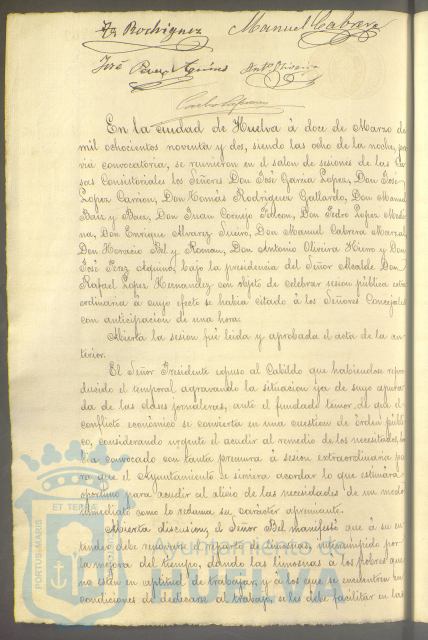 Rodriguez Manuel Cabrera
José Perez Aquino Antº Oliveira
En la ciudad de Huelva á doce de Marzo de
mil ochocientos noventa y dos, siendo las ocho de la noche, pre
via convocatoria, se reunieron en el salon de sesiones de las Ca
sas Consistoriales los Señores Don José Garcia Lopez, Don José
Lopez Carrion, Don Tomás Rodriguez Gallardo, Don Manuel
Baez y Baez, Don Juan Cornejo Falcon, Don Pedro Lopez
Don Enrique Alvarez Don Manuel Cabrera
Don Horacio Bel y Roman, Don Antonio Oliveira Hiero y Don
José Perez Aquino, bajo la presidencia del Señor Alcalde Don
Rafael Lopez Hernandez con objeto de celebrar sesion pública extra
ordinaria á cuyo efecto se habia citado á los Señores Concejales
con anticipacion de una hora.
Abierta la sesion fué leida y aprobada el acta de la an
terior.
El Señor Presidente espuso al Cabildo que habiendose repro
ducido el temporal agravando la situacion ya de suyo apura
da de las clases jornaleras, ante el fundado temor de que el
conflicto económico se convierta en una cuestion de órden públi
co, considerando urgente el acudir al remedio de los necesitados, ha
bia convocado con tanta premura á sesion extraordinaria pa
ra que el Ayuntamiento se sirviera acordar lo que estimára
oportuno para acudir al alivio de las necesidades de un modo
inmediato como lo reclama su carácter apremiante.
Abierta discusion, el Señor Bel manifestó que á su en
tender debe renovarse el reparto de limosnas, interrumpido por
la mejora del tiempo, dando las limosnas á los pobres que
no estén en aptitud de trabajar, y á los que se encuentren en
condiciones de dedicarse al trabajo se les debe facilitar en las
PORTUS MARIS
ET TERRÆ
Ayuntamiento de
HUELVA